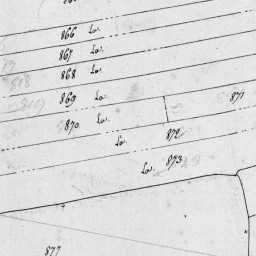 866 La.
867 La.
868 La.
869 La.
871
870 La.
La. 872
La. 873
877